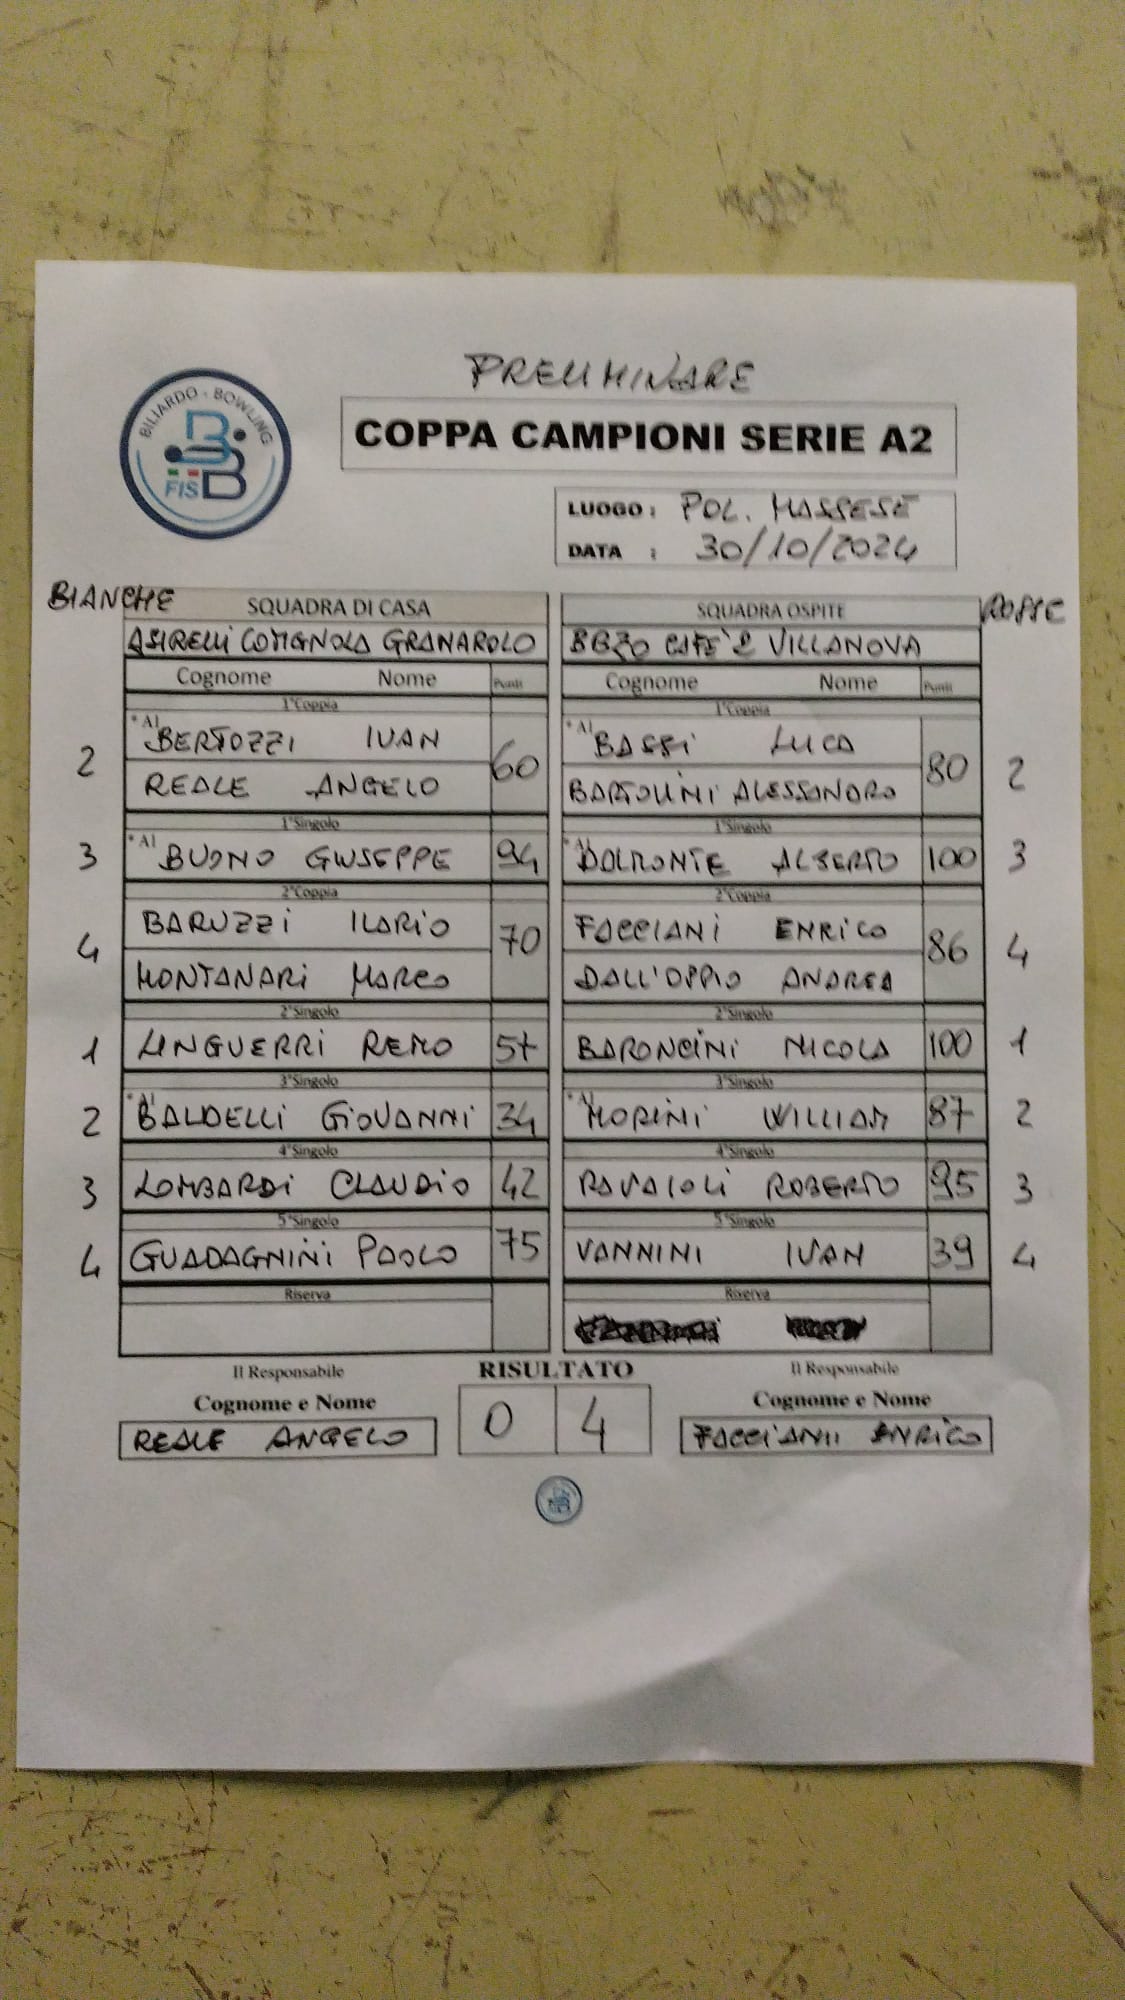 PRELIMINARE
BILIARDO - BOWLING
FISBB
COPPA CAMPIONI SERIE A2
LUOGO : POL. MASSESE
DATA : 30/10/2024
BIANCHE SQUADRA DI CASA SQUADRA OSPITE ROSSE
ASIRELLI COTIGNOLA GRANAROLO VILLANOVA
Cognome Nome Punti Cognome Nome Punti
1°Coppia 1°Coppia
* A1 BERTOZZI IVAN * A1 BASSI LUCA
2 60 80 2
REALE ANGELO BARTOLINI ALESSANDRO
1°Singolo 1°Singolo
3 * A1 BUONO GIUSEPPE 94 DALMONTE ALBERTO 100 3
2°Coppia 2°Coppia
BARUZZI ILARIO FACCIANI ENRICO
4 70 86 4
MONTANARI MARCO DALL'OPPIO ANDREA
2°Singolo 2°Singolo
1 LINGUERRI REMO 57 BARONCINI NICOLA 100 1
3°Singolo 3°Singolo
2 * A1 BALDELLI GIOVANNI 34 * A1 MORINI WILLIAM 87 2
4°Singolo 4°Singolo
3 LOMBARDI CLAUDIO 42 RAVAIOLI ROBERTO 95 3
5°Singolo 5°Singolo
4 GUADAGNINI PAOLO 75 VANNINI IVAN 39 4
Riserva Riserva
Il Responsabile RISULTATO Il Responsabile
Cognome e Nome 0 4 Cognome e Nome
REALE ANGELO FACCIANI ENRICO